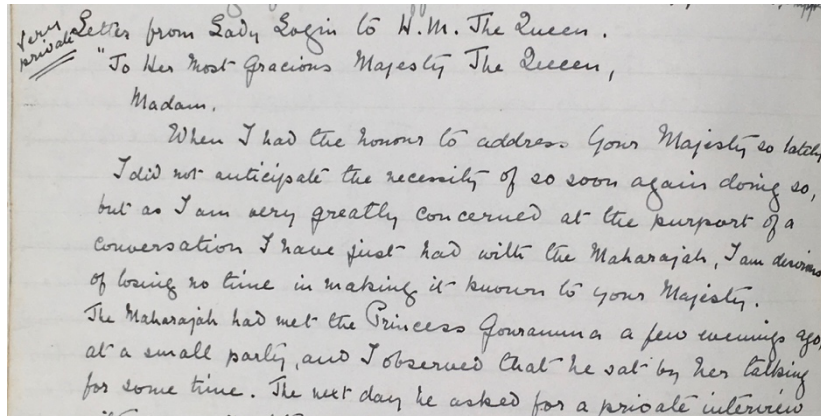 very
private
Letter from Lady Login to H.M. The Queen.
"To Her Most Gracious Majesty The Queen,
Madam,
When I had the honour to address Your Majesty so lately
I did not anticipate the necessity of so soon again doing so,
but as I am very greatly concerned at the purport of a
conversation I have just had with the Maharajah, I am desirous
of losing no time in making it known to your Majesty.
The Maharajah had met the Princess Gouramma a few evenings ago,
at a small party, and I observed that he sat by her talking
for some time. The next day he asked for a private interview